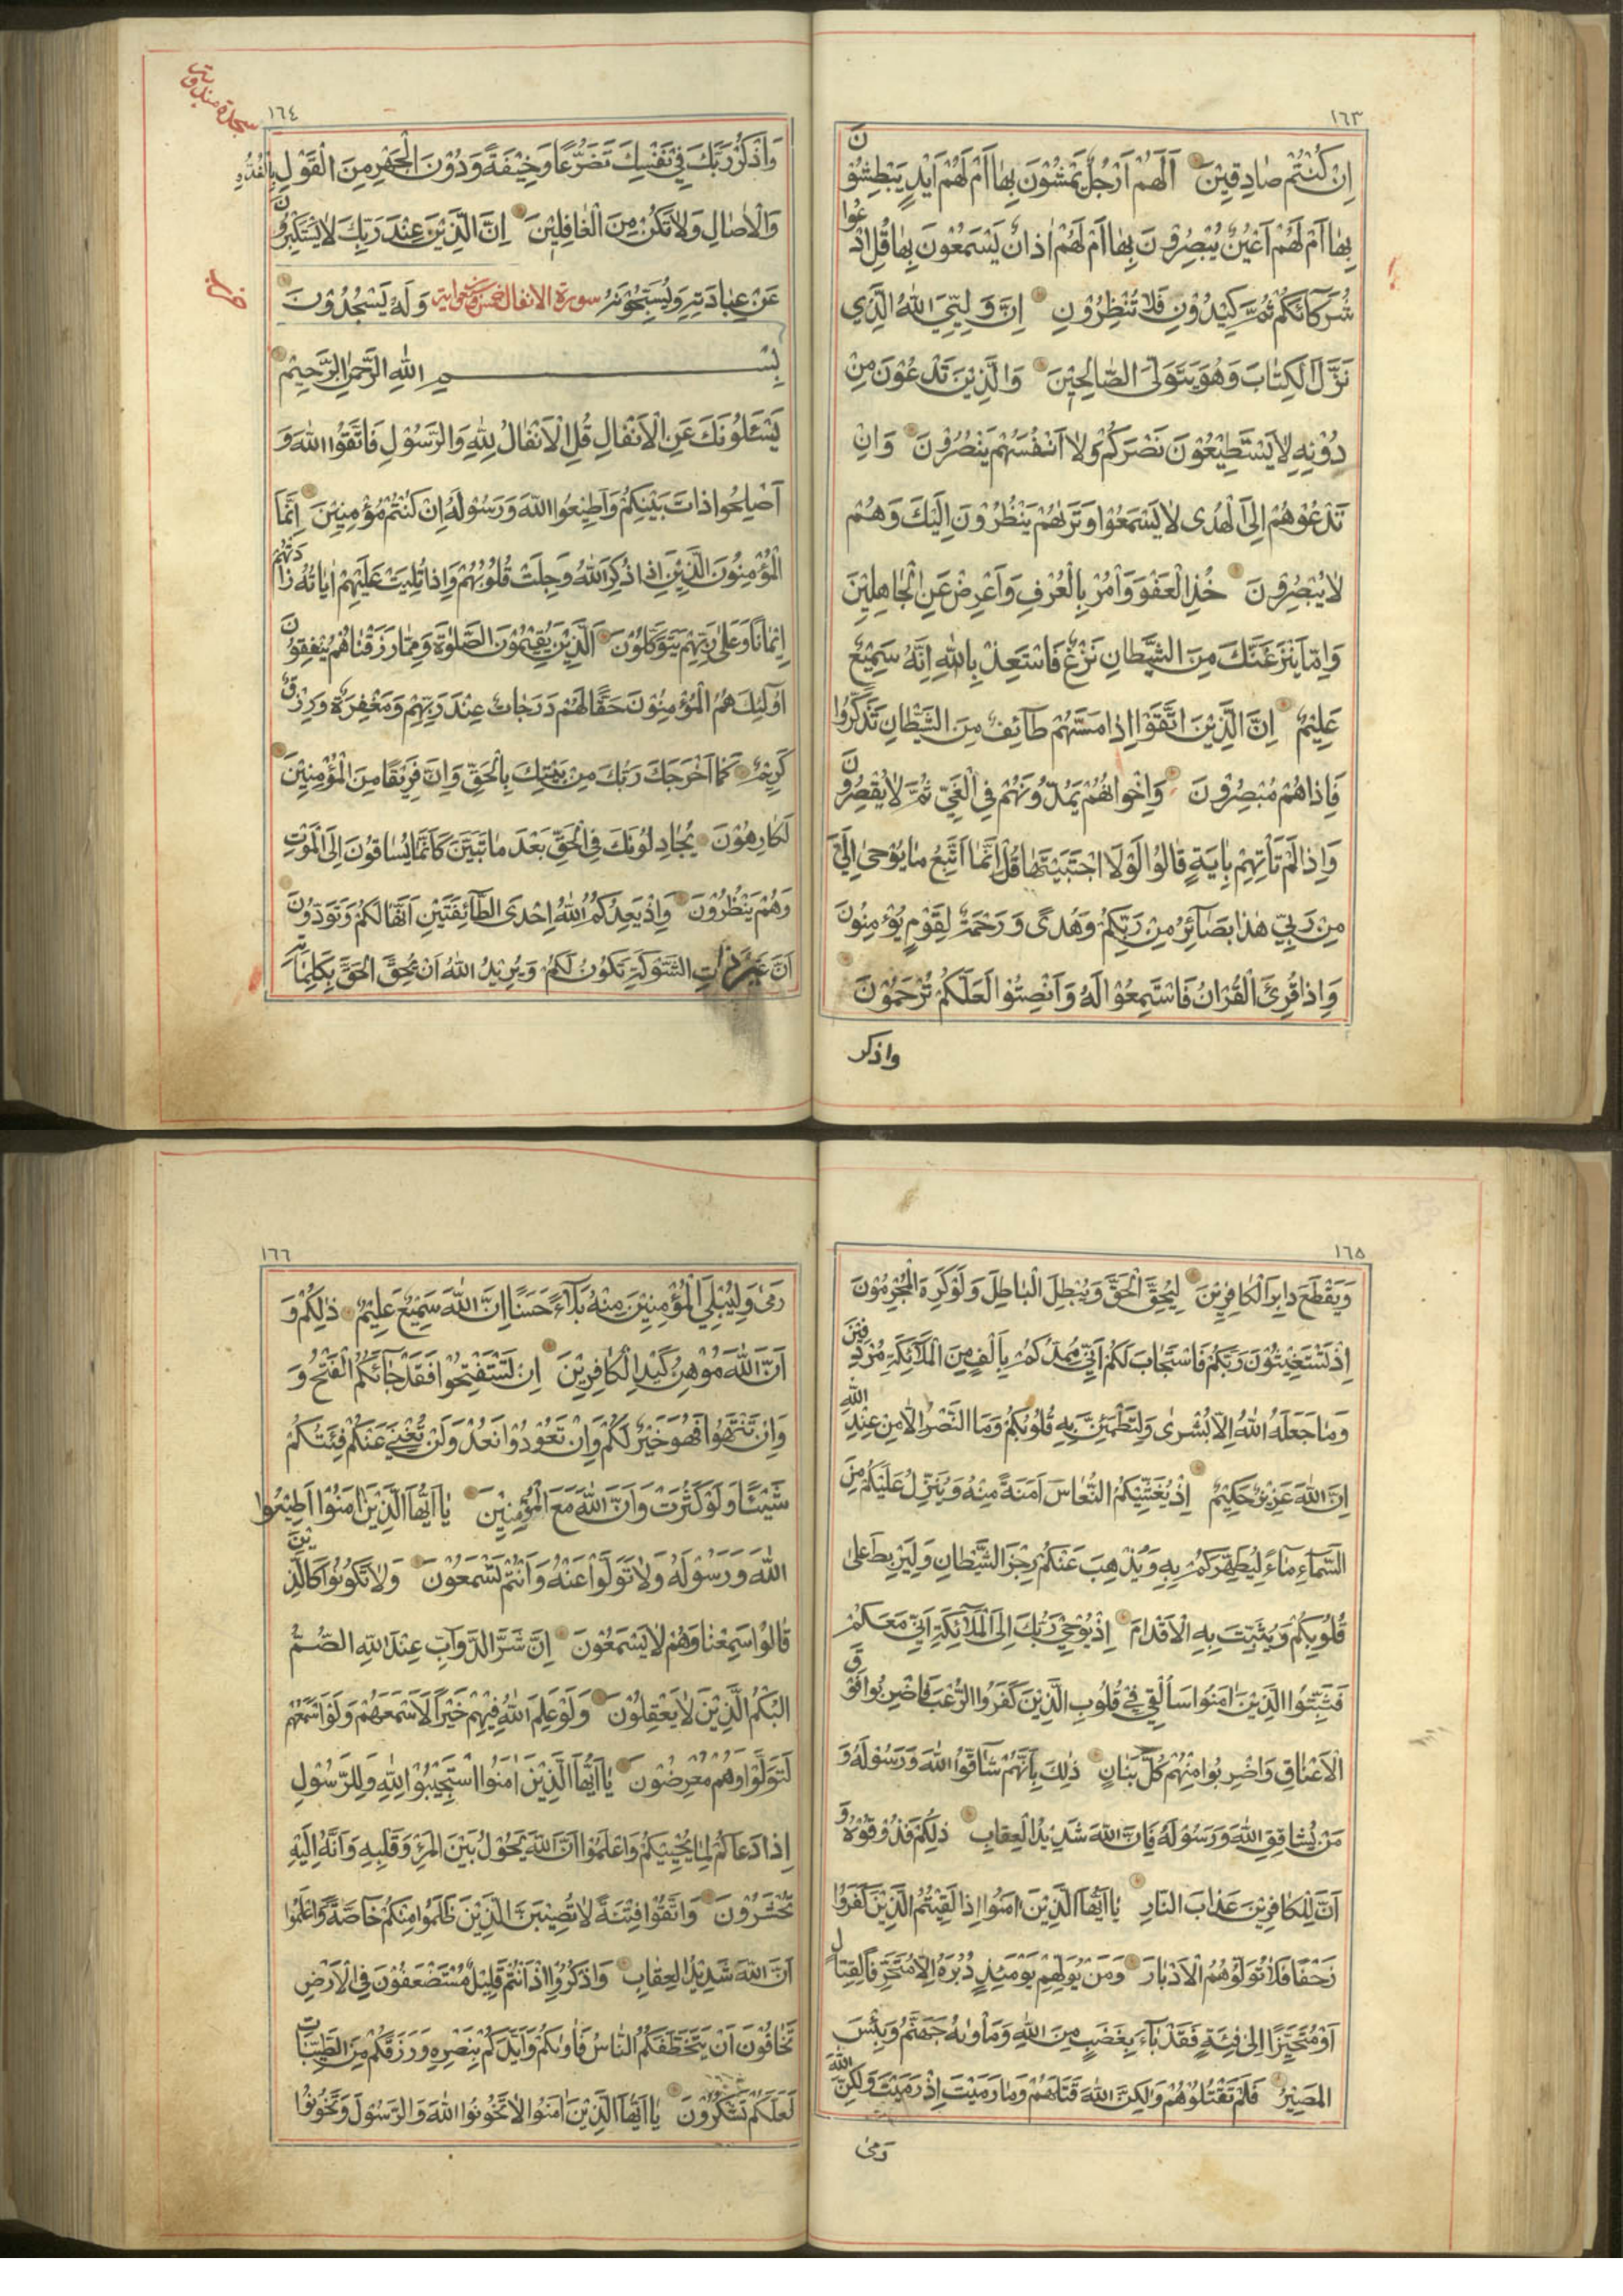 ١٦٣
اِنْ كُنْتُمْ صٰادِقِيْنَ اَلَهُمْ اَرْجُلٌ يَمْشُوْنَ بِهٰا اَمْ لَهُمْ اَيْدٍ يَبْطِشُوْنَ
بِهٰا اَمْ لَهُمْ اَعْيُنٌ يُبْصِرُوْنَ بِهٰا اَمْ لَهُمْ اٰذانٌ يَسْمَعُوْنَ بِهٰا قُلِ ادْعُوا
شُرَكٰائَكُمْ ثُمَّ كِيْدُوْنِ فَلٰا تُنْظِرُوْنِ اِنَّ وَلِيِّيَ اللهُ الَّذِي
نَزَّلَ الْكِتٰابَ وَهُوَ يَتَوَلَّى الصّٰالِحِيْنَ وَالَّذِيْنَ تَدْعُوْنَ مِنْ
دُوْنِهِ لٰا يَسْتَطِيْعُوْنَ نَصْرَكُمْ وَلٰا اَنْفُسَهُمْ يَنْصُرُوْنَ وَاِنْ
تَدْعُوْهُمْ اِلَى الْهُدٰى لٰا يَسْمَعُوا وَتَرٰيهُمْ يَنْظُرُوْنَ اِلَيْكَ وَهُمْ
لٰا يُبْصِرُوْنَ خُذِ الْعَفْوَ وَأْمُرْ بِالْعُرْفِ وَاَعْرِضْ عَنِ الْجٰاهِلِيْنَ
وَاِمّٰا يَنْزَغَنَّكَ مِنَ الشَّيْطانِ نَزْغٌ فَاسْتَعِذْ بِاللهِ اِنَّهُ سَمِيْعٌ
عَلِيْمٌ اِنَّ الَّذِيْنَ اتَّقَوْا اِذا مَسَّهُمْ طٰآئِفٌ مِنَ الشَّيْطانِ تَذَكَّرُوا
فَاِذاهُمْ مُبْصِرُوْنَ وَاِخْوٰانُهُمْ يَمُدُّوْنَهُمْ فِي الْغَيِّ ثُمَّ لٰا يُقْصِرُوْنَ
وَاِذا لَمْ تَأْتِهِمْ بِاٰيَةٍ قٰالُوا لَوْلَا اجْتَبَيْتَهٰا قُلْ اِنَّمٰا اَتَّبِعُ مٰا يُوْحٰى اِلَيَّ
مِنْ رَبِّي هٰذا بَصٰآئِرُ مِنْ رَبِّكُمْ وَهُدًى وَرَحْمَةٌ لِقَوْمٍ يُؤْمِنُوْنَ
وَاِذا قُرِئَ الْقُرْاٰنُ فَاسْتَمِعُوْا لَهُ وَاَنْصِتُوا لَعَلَّكُمْ تُرْحَمُوْنَ
واذكر
١٦٤
سجدة مندوبة
وَاذْكُرْ رَبَّكَ فِيْ نَفْسِكَ تَضَرُّعًا وَخِيْفَةً وَدُوْنَ الْجَهْرِ مِنَ الْقَوْلِ بِالْغُدُوِّ
وَالْاٰصٰالِ وَلٰا تَكُنْ مِنَ الْغٰافِلِيْنَ اِنَّ الَّذِيْنَ عِنْدَ رَبِّكَ لٰا يَسْتَكْبِرُوْنَ
عَنْ عِبٰادَتِهِ وَيُسَبِّحُوْنَهُ سورة الانفال خمس وسبعون اية وَلَهُ يَسْجُدُوْنَ
بِسْمِ اللهِ الرَّحْمٰنِ الرَّحِيْمِ
يَسْئَلُوْنَكَ عَنِ الْاَنْفٰالِ قُلِ الْاَنْفٰالُ لِلّٰهِ وَالرَّسُوْلِ فَاتَّقُوا اللهَ وَ
اَصْلِحُوا ذاتَ بَيْنِكُمْ وَاَطِيْعُوا اللهَ وَرَسُوْلَهُ اِنْ كُنْتُمْ مُؤْمِنِيْنَ اِنَّمَا
الْمُؤْمِنُوْنَ الَّذِيْنَ اِذا ذُكِرَ اللهُ وَجِلَتْ قُلُوْبُهُمْ وَاِذا تُلِيَتْ عَلَيْهِمْ اٰيٰاتُهُ زادَتْهُمْ
اِيْمٰانًا وَعَلٰى رَبِّهِمْ يَتَوَكَّلُوْنَ اَلَّذِيْنَ يُقِيْمُوْنَ الصَّلٰوةَ وَمِمّٰا رَزَقْنٰاهُمْ يُنْفِقُوْنَ
اُولٰئِكَ هُمُ الْمُؤْمِنُوْنَ حَقًّا لَهُمْ دَرَجٰاتٌ عِنْدَ رَبِّهِمْ وَمَغْفِرَةٌ وَرِزْقٌ
كَرِيْمٌ كَمٰا اَخْرَجَكَ رَبُّكَ مِنْ بَيْتِكَ بِالْحَقِّ وَاِنَّ فَرِيْقًا مِنَ الْمُؤْمِنِيْنَ
لَكٰارِهُوْنَ يُجٰادِلُوْنَكَ فِي الْحَقِّ بَعْدَ مٰا تَبَيَّنَ كَاَنَّمٰا يُسٰاقُوْنَ اِلَى الْمَوْتِ
وَهُمْ يَنْظُرُوْنَ وَاِذْ يَعِدُكُمُ اللهُ اِحْدَى الطّٰآئِفَتَيْنِ اَنَّهٰا لَكُمْ وَتَوَدُّوْنَ
اَنَّ غَيْرَ ذاتِ الشَّوْكَةِ تَكُوْنُ لَكُمْ وَيُرِيْدُ اللهُ اَنْ يُحِقَّ الْحَقَّ بِكَلِمٰاتِهِ
١٦٥
وَيَقْطَعَ دابِرَ الْكٰافِرِيْنَ لِيُحِقَّ الْحَقَّ وَيُبْطِلَ الْبٰاطِلَ وَلَوْ كَرِهَ الْمُجْرِمُوْنَ
اِذْ تَسْتَغِيْثُوْنَ رَبَّكُمْ فَاسْتَجٰابَ لَكُمْ اَنِّي مُمِدُّكُمْ بِاَلْفٍ مِنَ الْمَلٰٓئِكَةِ مُرْدِفِيْنَ
وَمٰا جَعَلَهُ اللهُ اِلّٰا بُشْرٰى وَلِتَطْمَئِنَّ بِهِ قُلُوْبُكُمْ وَمَا النَّصْرُ اِلّٰا مِنْ عِنْدِ اللهِ
اِنَّ اللهَ عَزِيْزٌ حَكِيْمٌ اِذْ يُغَشِّيْكُمُ النُّعٰاسَ اَمَنَةً مِنْهُ وَيُنَزِّلُ عَلَيْكُمْ مِنَ
السَّمٰآءِ مٰآءً لِيُطَهِّرَكُمْ بِهِ وَيُذْهِبَ عَنْكُمْ رِجْزَ الشَّيْطٰانِ وَلِيَرْبِطَ عَلٰى
قُلُوْبِكُمْ وَيُثَبِّتَ بِهِ الْاَقْدٰامَ اِذْ يُوْحِيْ رَبُّكَ اِلَى الْمَلٰٓئِكَةِ اَنِّيْ مَعَكُمْ
فَثَبِّتُوا الَّذِيْنَ اٰمَنُوا سَاُلْقِيْ فِيْ قُلُوْبِ الَّذِيْنَ كَفَرُوا الرُّعْبَ فَاضْرِبُوا فَوْقَ
الْاَعْنٰاقِ وَاضْرِبُوا مِنْهُمْ كُلَّ بَنٰانٍ ذٰلِكَ بِاَنَّهُمْ شٰآقُّوا اللهَ وَرَسُوْلَهُ وَ
مَنْ يُشٰاقِقِ اللهَ وَرَسُوْلَهُ فَاِنَّ اللهَ شَدِيْدُ الْعِقٰابِ ذٰلِكُمْ فَذُوْقُوْهُ وَ
اَنَّ لِلْكٰافِرِيْنَ عَذابَ النّارِ يٰا اَيُّهَا الَّذِيْنَ اٰمَنُوا اِذا لَقِيْتُمُ الَّذِيْنَ كَفَرُوا
زَحْفًا فَلٰا تُوَلُّوْهُمُ الْاَدْبٰارَ وَمَنْ يُوَلِّهِمْ يَوْمَئِذٍ دُبُرَهُ اِلّٰا مُتَحَرِّفًا لِقِتٰالٍ
اَوْ مُتَحَيِّزًا اِلٰى فِئَةٍ فَقَدْ بٰآءَ بِغَضَبٍ مِنَ اللهِ وَمَأْوٰيهُ جَهَنَّمُ وَبِئْسَ
الْمَصِيْرُ فَلَمْ تَقْتُلُوْهُمْ وَلٰكِنَّ اللهَ قَتَلَهُمْ وَمٰا رَمَيْتَ اِذْ رَمَيْتَ وَلٰكِنَّ اللهَ
رَمٰى
١٦٦
رَمٰى وَلِيُبْلِيَ الْمُؤْمِنِيْنَ مِنْهُ بَلٰٓاءً حَسَنًا اِنَّ اللهَ سَمِيْعٌ عَلِيْمٌ ذٰلِكُمْ وَ
اَنَّ اللهَ مُوْهِنُ كَيْدِ الْكٰافِرِيْنَ اِنْ تَسْتَفْتِحُوْا فَقَدْ جٰآئَكُمُ الْفَتْحُ وَ
وَاِنْ تَنْتَهُوْا فَهُوَ خَيْرٌ لَكُمْ وَاِنْ تَعُوْدُوْا نَعُدْ وَلَنْ تُغْنِيَ عَنْكُمْ فِئَتُكُمْ
شَيْئًا وَلَوْ كَثُرَتْ وَاَنَّ اللهَ مَعَ الْمُؤْمِنِيْنَ يٰا اَيُّهَا الَّذِيْنَ اٰمَنُوْا اَطِيْعُوا
اللهَ وَرَسُوْلَهُ وَلٰا تَوَلَّوْا عَنْهُ وَاَنْتُمْ تَسْمَعُوْنَ وَلٰا تَكُوْنُوْا كَالَّذِيْنَ
قٰالُوْا سَمِعْنٰا وَهُمْ لٰا يَسْمَعُوْنَ اِنَّ شَرَّ الدَّوٰآبِّ عِنْدَ اللهِ الصُّمُّ
الْبُكْمُ الَّذِيْنَ لٰا يَعْقِلُوْنَ وَلَوْ عَلِمَ اللهُ فِيْهِمْ خَيْرًا لَاَسْمَعَهُمْ وَلَوْ اَسْمَعَهُمْ
لَتَوَلَّوْا وَهُمْ مُعْرِضُوْنَ يٰا اَيُّهَا الَّذِيْنَ اٰمَنُوا اسْتَجِيْبُوْا لِلّٰهِ وَلِلرَّسُوْلِ
اِذا دَعٰاكُمْ لِمٰا يُحْيِيْكُمْ وَاعْلَمُوْا اَنَّ اللهَ يَحُوْلُ بَيْنَ الْمَرْءِ وَقَلْبِهِ وَاَنَّهُ اِلَيْهِ
تُحْشَرُوْنَ وَاتَّقُوْا فِتْنَةً لٰا تُصِيْبَنَّ الَّذِيْنَ ظَلَمُوْا مِنْكُمْ خٰآصَّةً وَاعْلَمُوا
اَنَّ اللهَ شَدِيْدُ الْعِقٰابِ وَاذْكُرُوْا اِذْ اَنْتُمْ قَلِيْلٌ مُسْتَضْعَفُوْنَ فِي الْاَرْضِ
تَخٰافُوْنَ اَنْ يَتَخَطَّفَكُمُ النّٰاسُ فَاٰوٰيكُمْ وَاَيَّدَكُمْ بِنَصْرِهِ وَرَزَقَكُمْ مِنَ الطَّيِّبٰاتِ
لَعَلَّكُمْ تَشْكُرُوْنَ يٰا اَيُّهَا الَّذِيْنَ اٰمَنُوا لٰا تَخُوْنُوا اللهَ وَالرَّسُوْلَ وَتَخُوْنُوْا